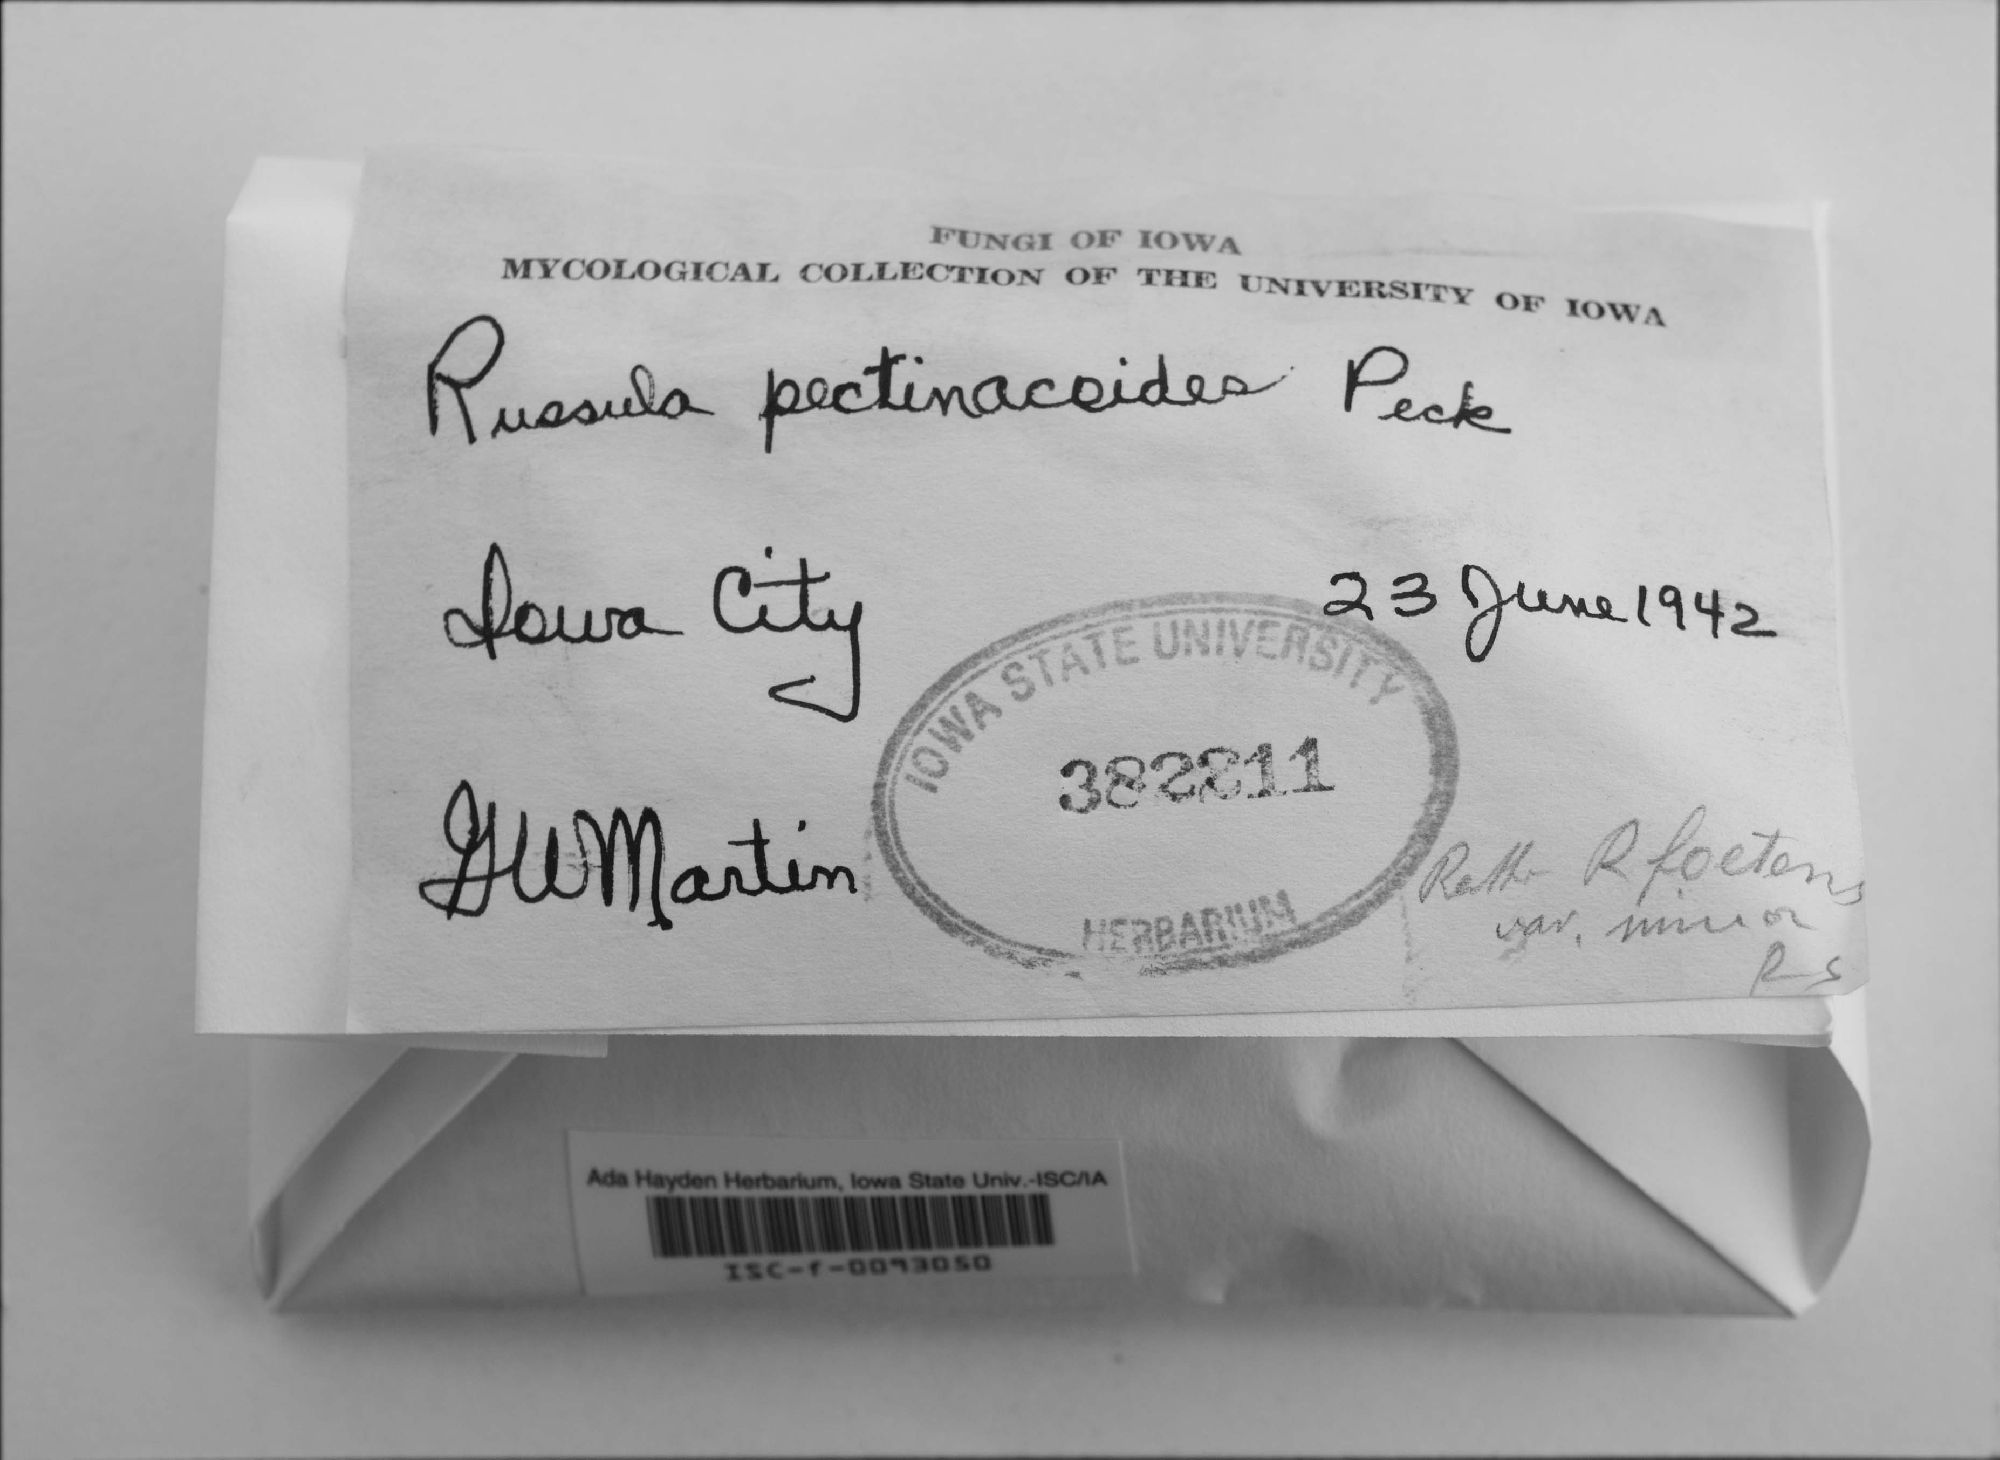 FUNGI OF IOWA
MYCOLOGICAL COLLECTION OF THE UNIVERSITY OF IOWA
Russula pectinacoides Peck
Iowa City
23 June 1942
IOWA STATE UNIVERSITY
382811
HERBARIUM
GWMartin
R foetens
var. minor
RS
Ada Hayden Herbarium, Iowa State Univ.-ISC/IA
ISC-f-0093050